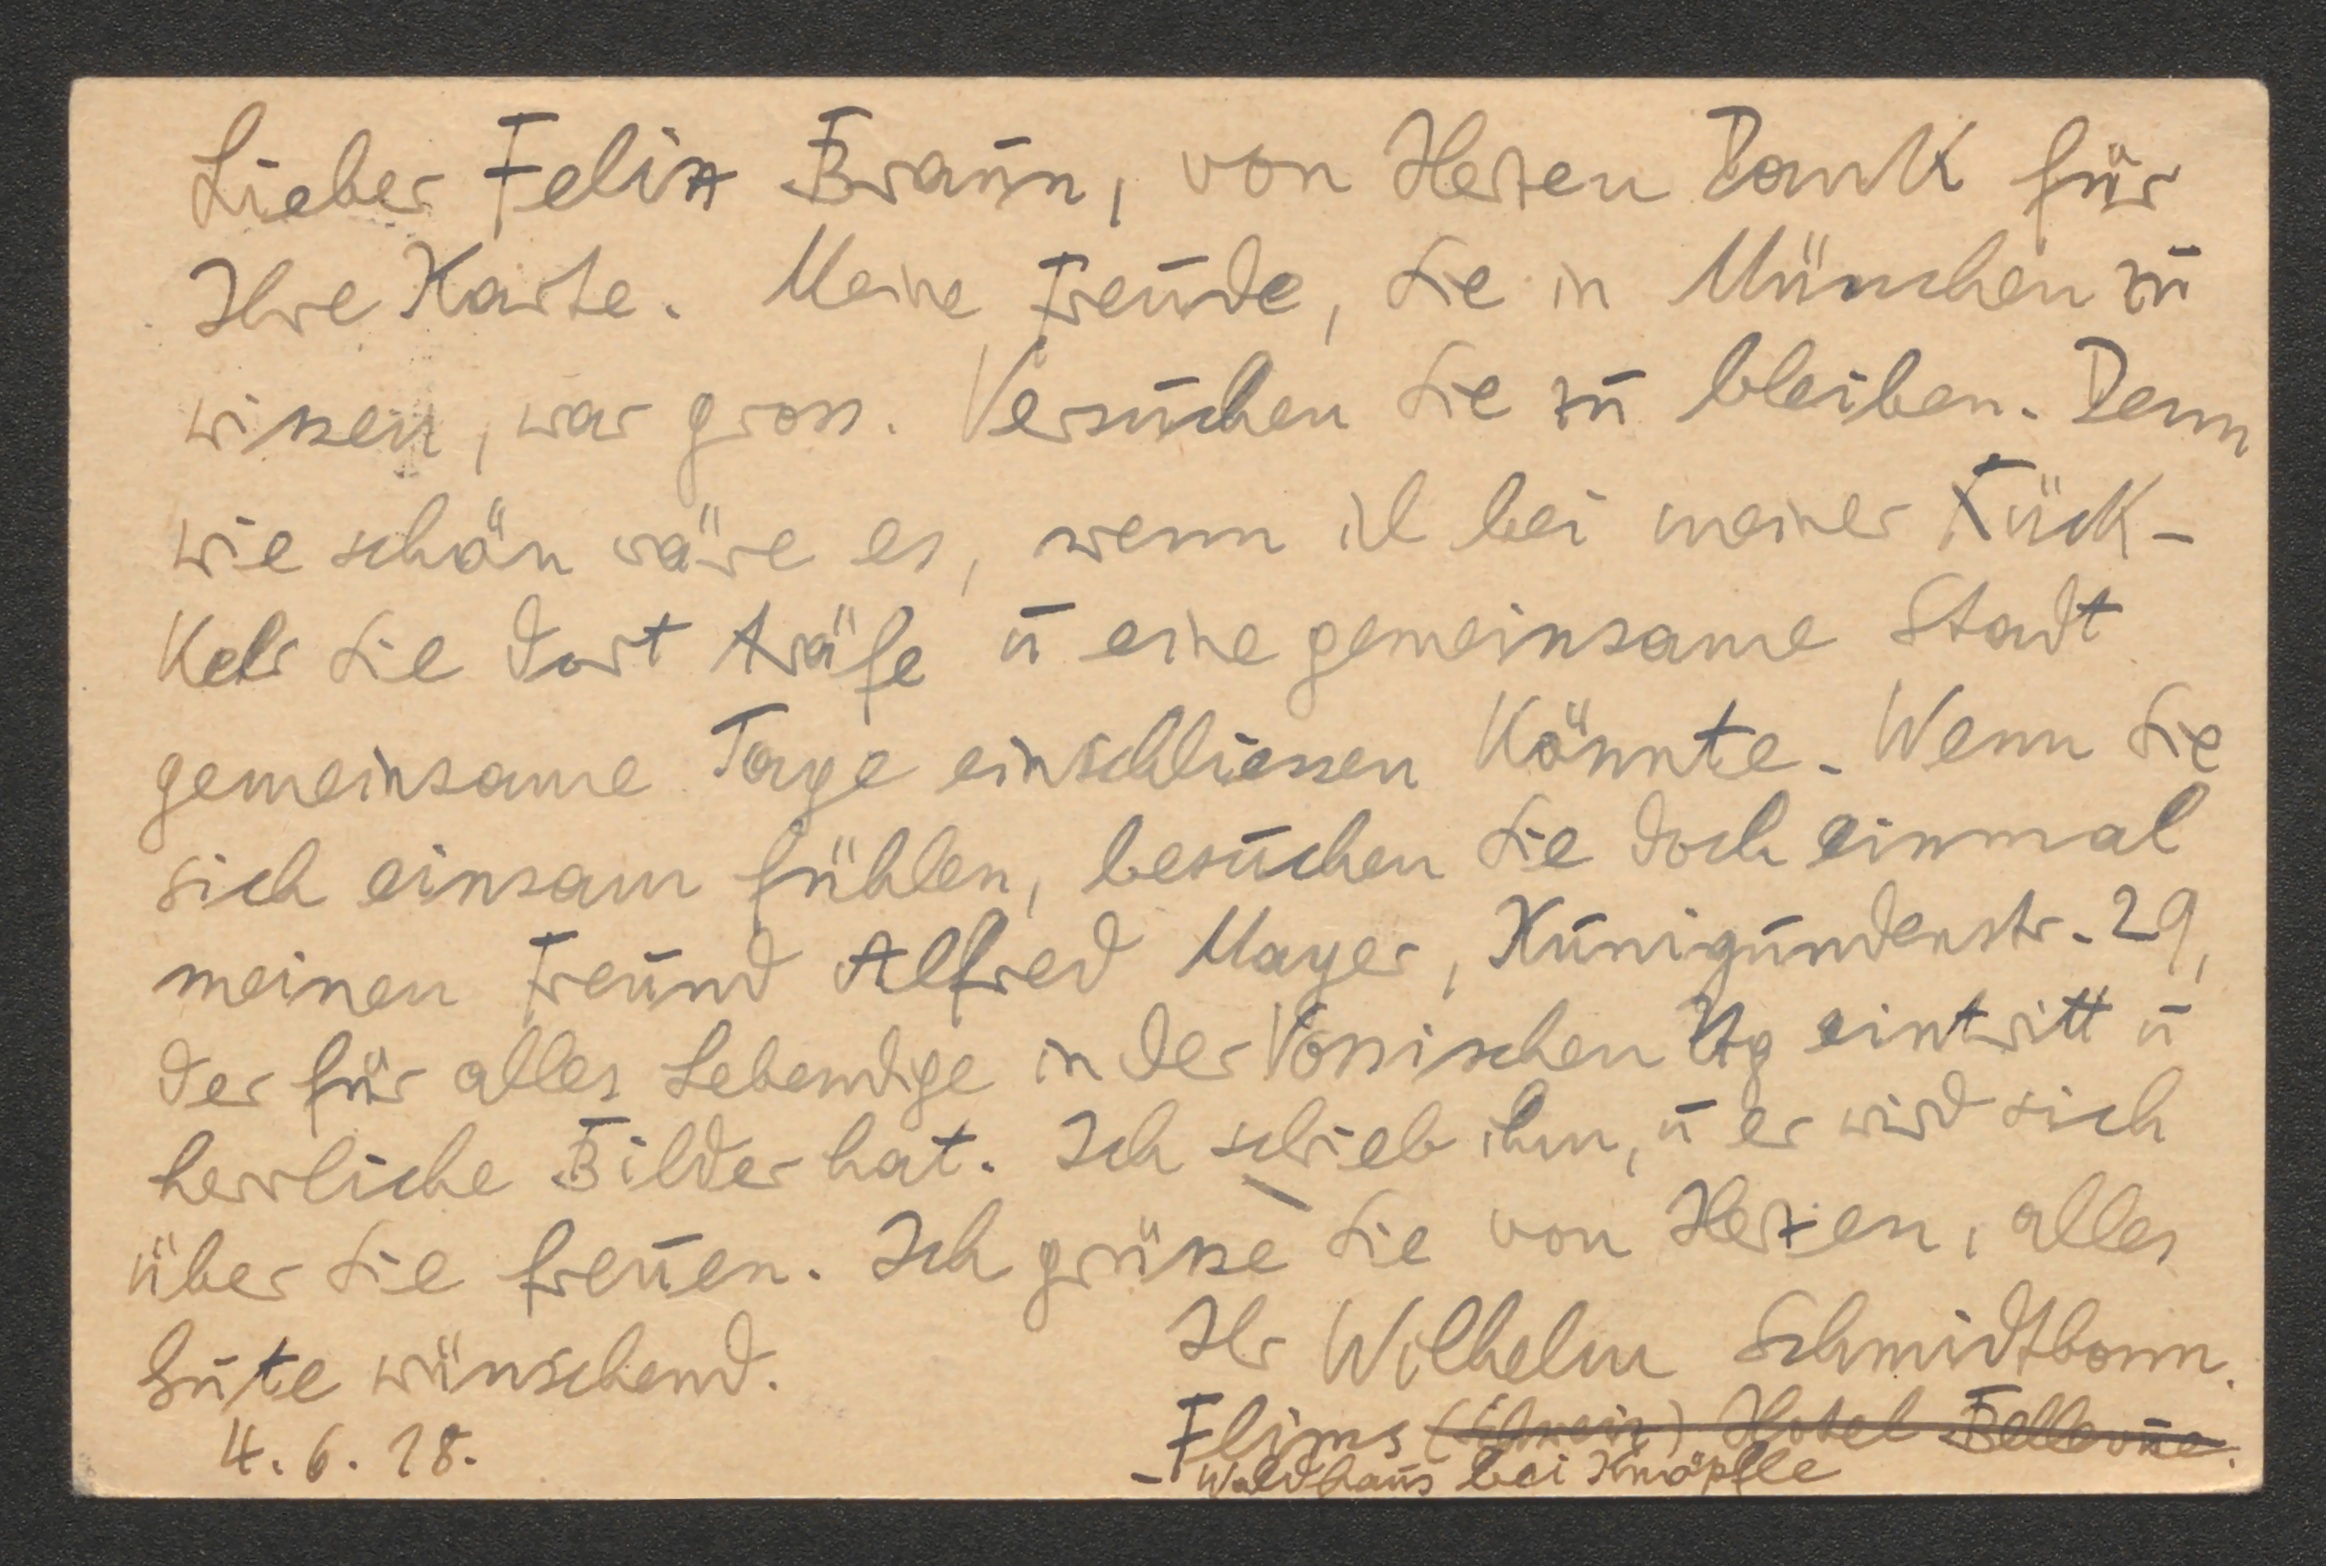 Lieber Felix Braun, von Herzen Dank für
Ihre Karte. Meine Freude, Sie in München zu
wissen, war gross. Versuchen Sie zu bleiben. Denn
wie schön wäre es, wenn ich bei meiner Rück-
kehr Sie dort träfe u eine gemeinsame Stadt
gemeinsame Tage einschliessen könnte. Wenn Sie
sich einsam fühlen, besuchen Sie doch einmal
meinen Freund Alfred Mayer, Kunigundenstr. 29,
der für alles Lebendige in der Vossischen Ztg eintritt u
herrliche Bilder hat. Ich schrieb ihm, u er wird sich
über Sie freuen. Ich grüsse Sie von Herzen, alles
Gute wünschend.
Ihr Wilhelm Schmidtbonn.
4. 6. 18.
Flims (Schweiz) Hotel Bellevue.
- Waldhaus bei Knöpfle